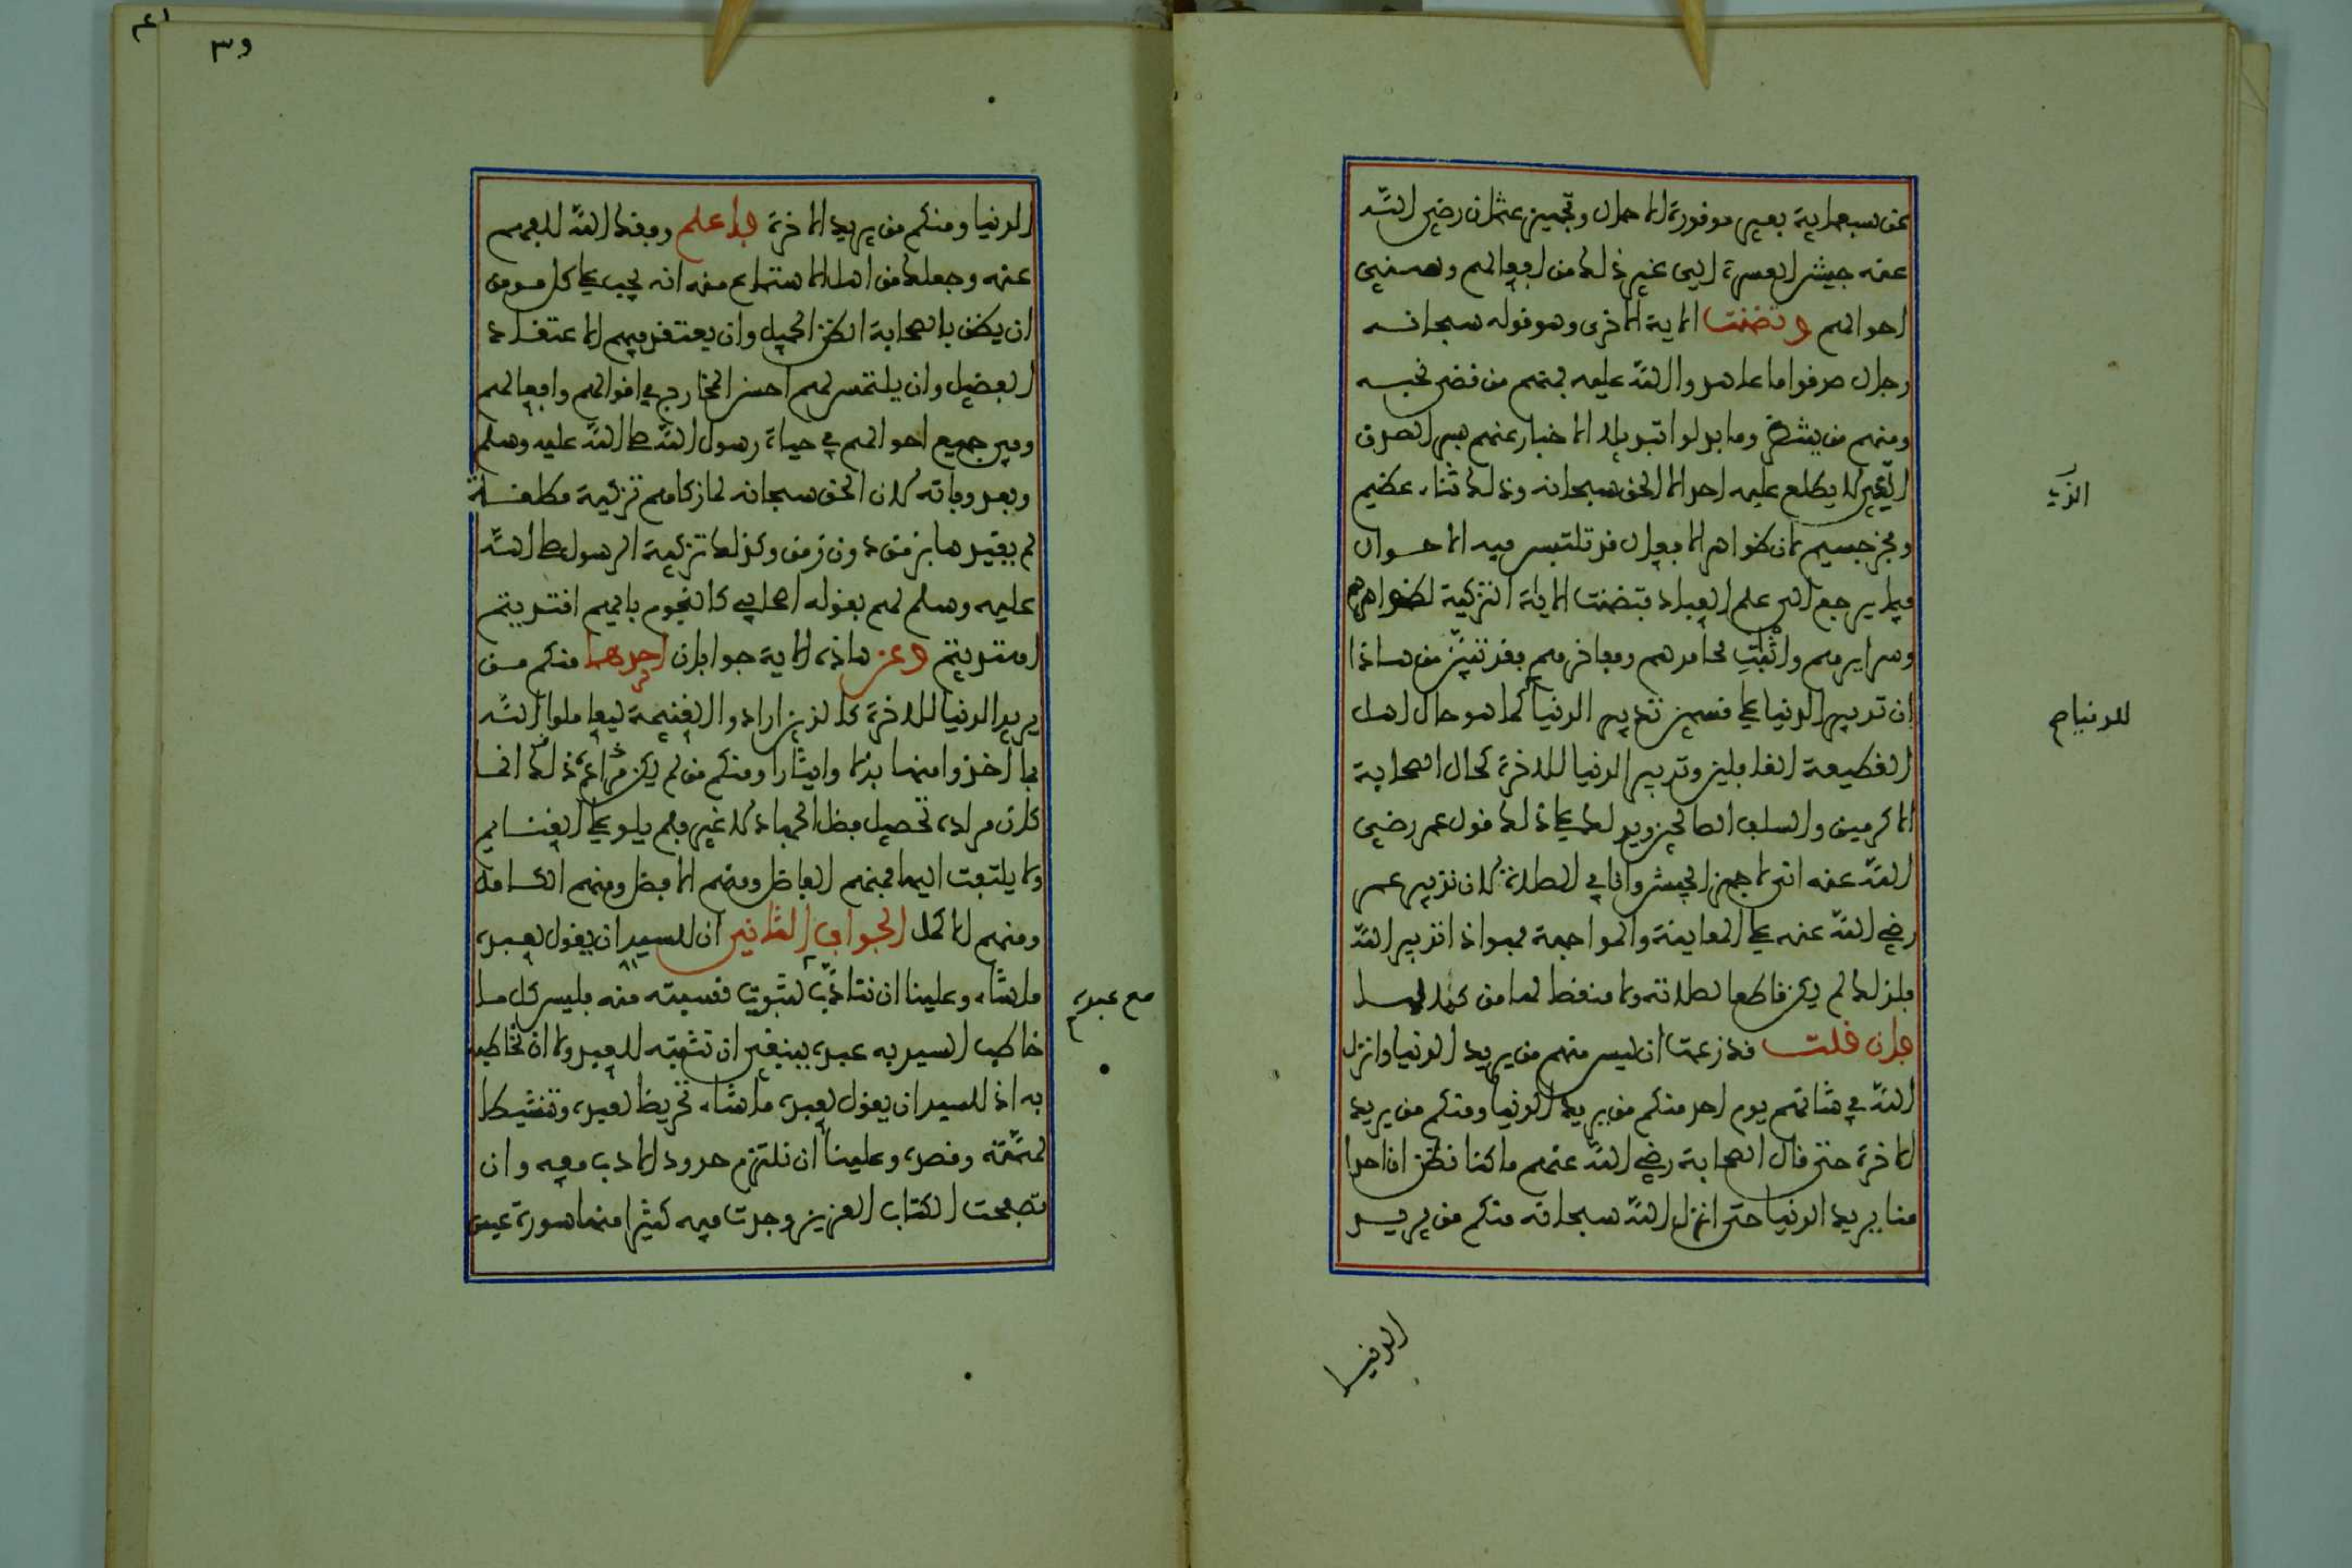 عن سبعماية بعير موفورة الاحمال وتجهيز عثمان رضي الله
عنه جيش العسرة الى غير ذلك من افعالهم وسني
احوالهم وتضمنت الاية الاخرى وهو قوله سبحانه
رجال صدقوا ما عاهدوا الله عليه فمنهم من قضى نحبه
ومنهم من ينتظر وما بدلوا تبديلا الاخبار عنهم بسر الصدق
الذي لا يطلع عليه احد الا الحق سبحانه وذلك ثناء عظيم
الذي
وفخر جسيم لان ظواهر الافعال قد تلتبس فيه الاحوال
فيما يرجع الى علم العباد فتضمنت الاية التزكية لظواهرهم
وسرايرهم واثبات محامدهم ومفاخرهم فقد تبين من هذا
ان تدبير الدنيا على قسمين تدبير الدنيا كما هو حال اهل
للدنيا
القطيعة الغافلين وتدبير الدنيا للاخرة كحال الصحابة
الاكرمين والسلف الصالحين ويدلك على ذلك قول عمر رضي
الله عنه اني لاجهز الجيش وانا في الصلاة لان تدبير عمر
رضي الله عنه على المعاينة والمواجهة فهو اذا تدبير الله
فلذلك لم يكن قاطعا لصلاته ولا منقصا لها من كمالها
فان قلت قد زعمت ان ليس منهم من يريد الدنيا وانزل
الله في شانهم يوم احد منكم من يريد الدنيا ومنكم من يريد
الاخرة حتى قال الصحابة رضي الله عنهم ما كنا نظن ان احدا
منا يريد الدنيا حتى انزل الله سبحانه منكم من يريد
الدنيا
٣٩
الدنيا ومنكم من يريد الاخرة فاعلم وفقك الله للفهم
عنه وجعلك من اهل الاستماع منه انه يجب على كل مومن
ان يظن بالصحابة الظن الجميل وان يعتقد فيهم الاعتقاد
الفضيل وان يلتمس لهم احسن المخارج في اقوالهم وافعالهم
وفي جميع احوالهم في حياة رسول الله صلى الله عليه وسلم
وبعد وفاته لان الحق سبحانه لما زكاهم تزكية مطلقة
لم يقيدها بزمن دون زمن وكذلك تزكية الرسول صلى الله
عليه وسلم لهم بقوله اصحابي كالنجوم بايهم اقتديتم
اهتديتم وعن هاذه الاية جوابان احدهما منكم من
يريد الدنيا للاخرة كالذين ارادوا الغنيمة ليعاملوا الله
بما اخذوا منها بذلا وايثارا ومنكم من لم يكن مراده ذلك انما
كان مراده تحصيل فضل الجهاد لا غير فلم يلو على الغنايم
ولا يلتفت اليها فمنهم الفاضل ومنهم الافضل ومنهم الكامل
ومنهم الاكمل الجواب الثاني ان للسيد ان يقول لعبده
ما شاء وعلينا ان نتادب لثبوت نسبته منه فليس كل ما
مع عبده
خاطب السيد به عبده ينبغي ان تثبته للعبد ولا ان تخاطبه
به اذ للسيد ان يقول لعبده ما شاء تحريضا لعبده وتنشيطا
لهمته وقصده وعلينا ان نلتزم حدود الادب معه وان
تصفحت الكتاب العزيز وجدت فيه كثيرا منها سورة عبس